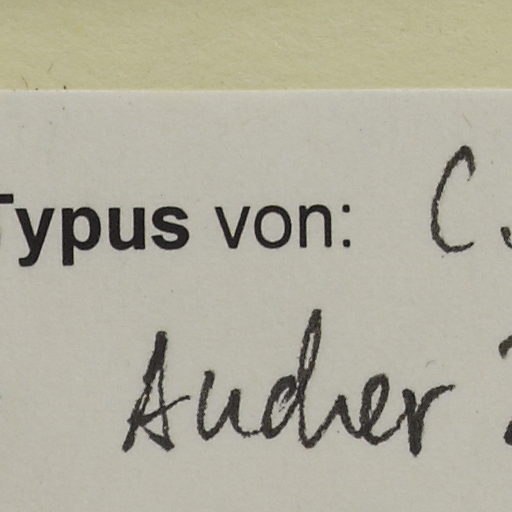 Typus von: C.
Aucher